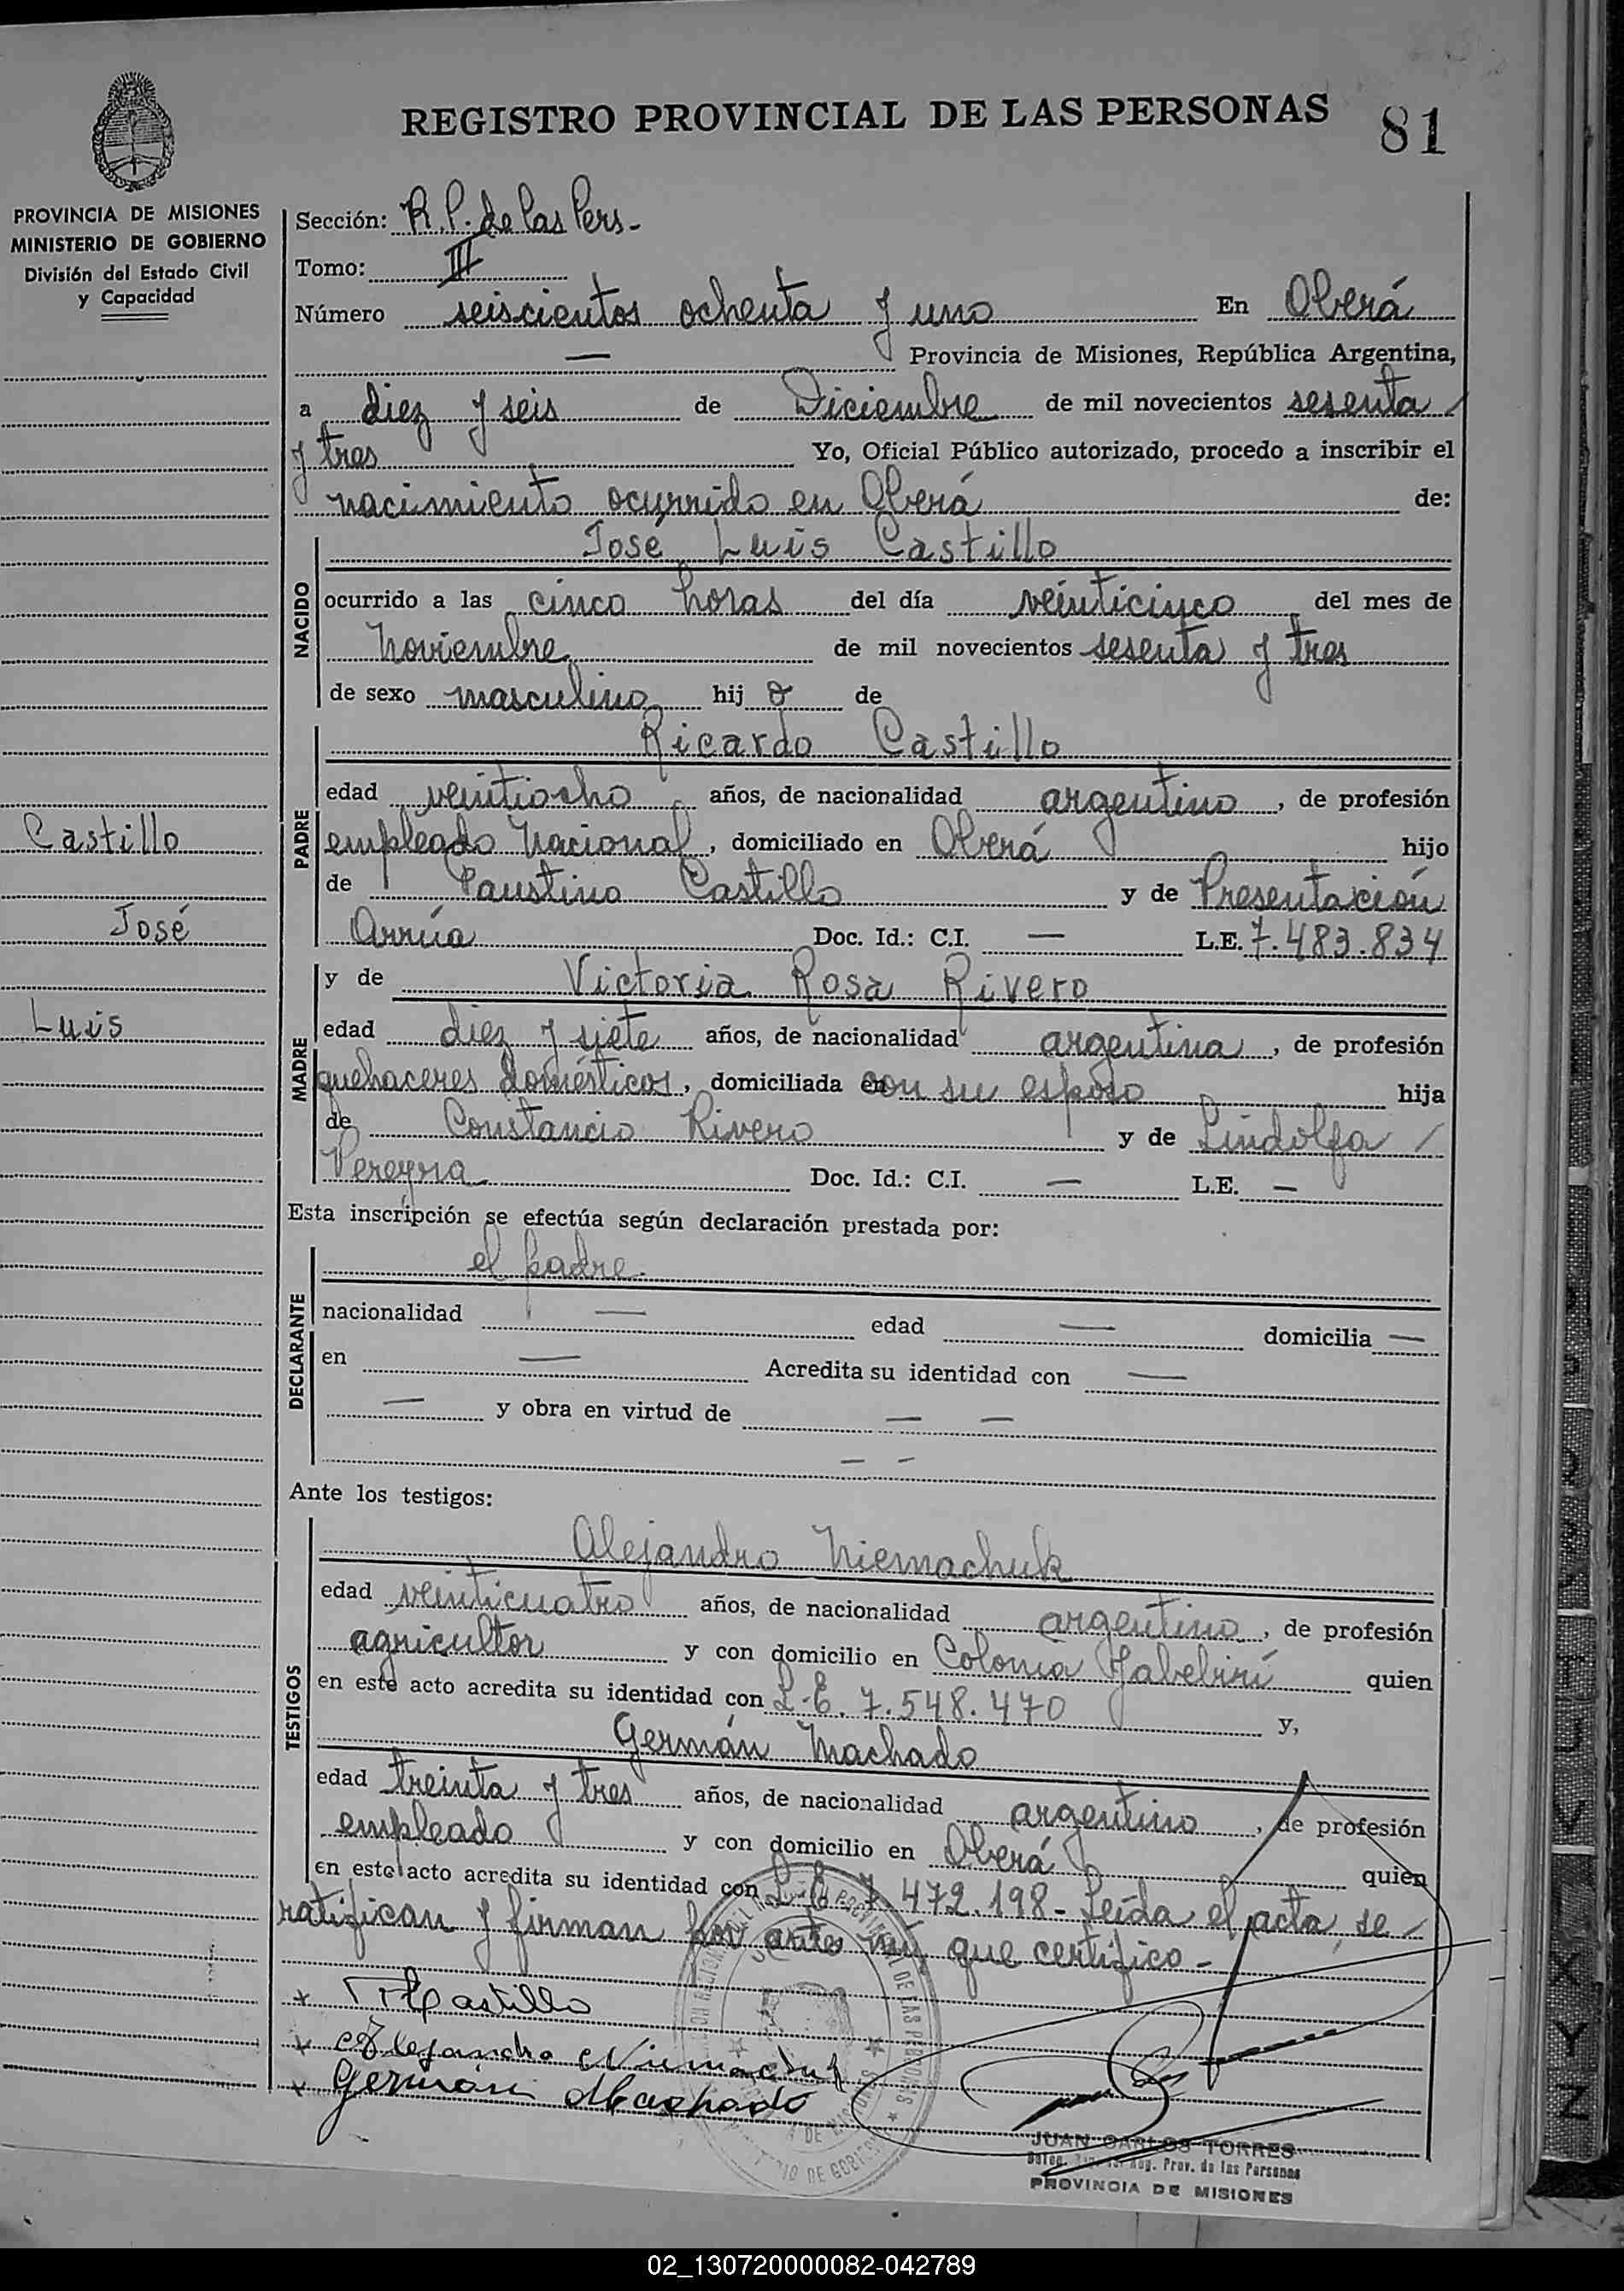 REGISTRO PROVINCIAL DE LAS PERSONAS 81
PROVINCIA DE MISIONES
MINISTERIO DE GOBIERNO
División del Estado Civil
y Capacidad
Sección: R.P. de las Pers-
Tomo: III
Número seiscientos ochenta y uno En Oberá
— Provincia de Misiones, República Argentina,
a diez y seis de Diciembre de mil novecientos sesenta /
y tres Yo, Oficial Público autorizado, procedo a inscribir el
nacimiento ocurrido en Oberá de:
NACIDO
Jose Luis Castillo
ocurrido a las cinco horas del día veinticinco del mes de
Noviembre de mil novecientos sesenta y tres
de sexo masculino hij o de
PADRE
Ricardo Castillo
edad veintiocho años, de nacionalidad argentino, de profesión
Castillo
empleado Nacional, domiciliado en Oberá hijo
de Faustino Castillo y de Presentación
José
Arrúa Doc. Id.: C.I. — L.E. 7.483.834
MADRE
y de Victoria Rosa Rivero
Luis
edad diez y siete años, de nacionalidad argentina, de profesión
quehaceres domésticos, domiciliada en con su esposo hija
de Constancio Rivero y de Lindolfa /
Pereyra Doc. Id.: C.I. — L.E. —
Esta inscripción se efectúa según declaración prestada por:
DECLARANTE
el padre.
nacionalidad — edad — domicilia —
en — Acredita su identidad con —
— y obra en virtud de — —
— —
Ante los testigos:
TESTIGOS
Alejandro Niemachuk
edad veinticuatro años, de nacionalidad argentino, de profesión
agricultor y con domicilio en Colonia Yabebirí quien
en este acto acredita su identidad con L.E. 7.548.470 y,
Germán Machado
edad treinta y tres años, de nacionalidad argentino, de profesión
empleado y con domicilio en Oberá quien
en este acto acredita su identidad con L.E. 7.472.198- Leída el acta, se /
ratifican y firman por ante mí, que certifico -
x Castillo
x Alejandro Niemachuk
x Germán Machado
JUAN CARLOS TORRES
Reg. Prov. de las Personas
PROVINCIA DE MISIONES
02_130720000082-042789